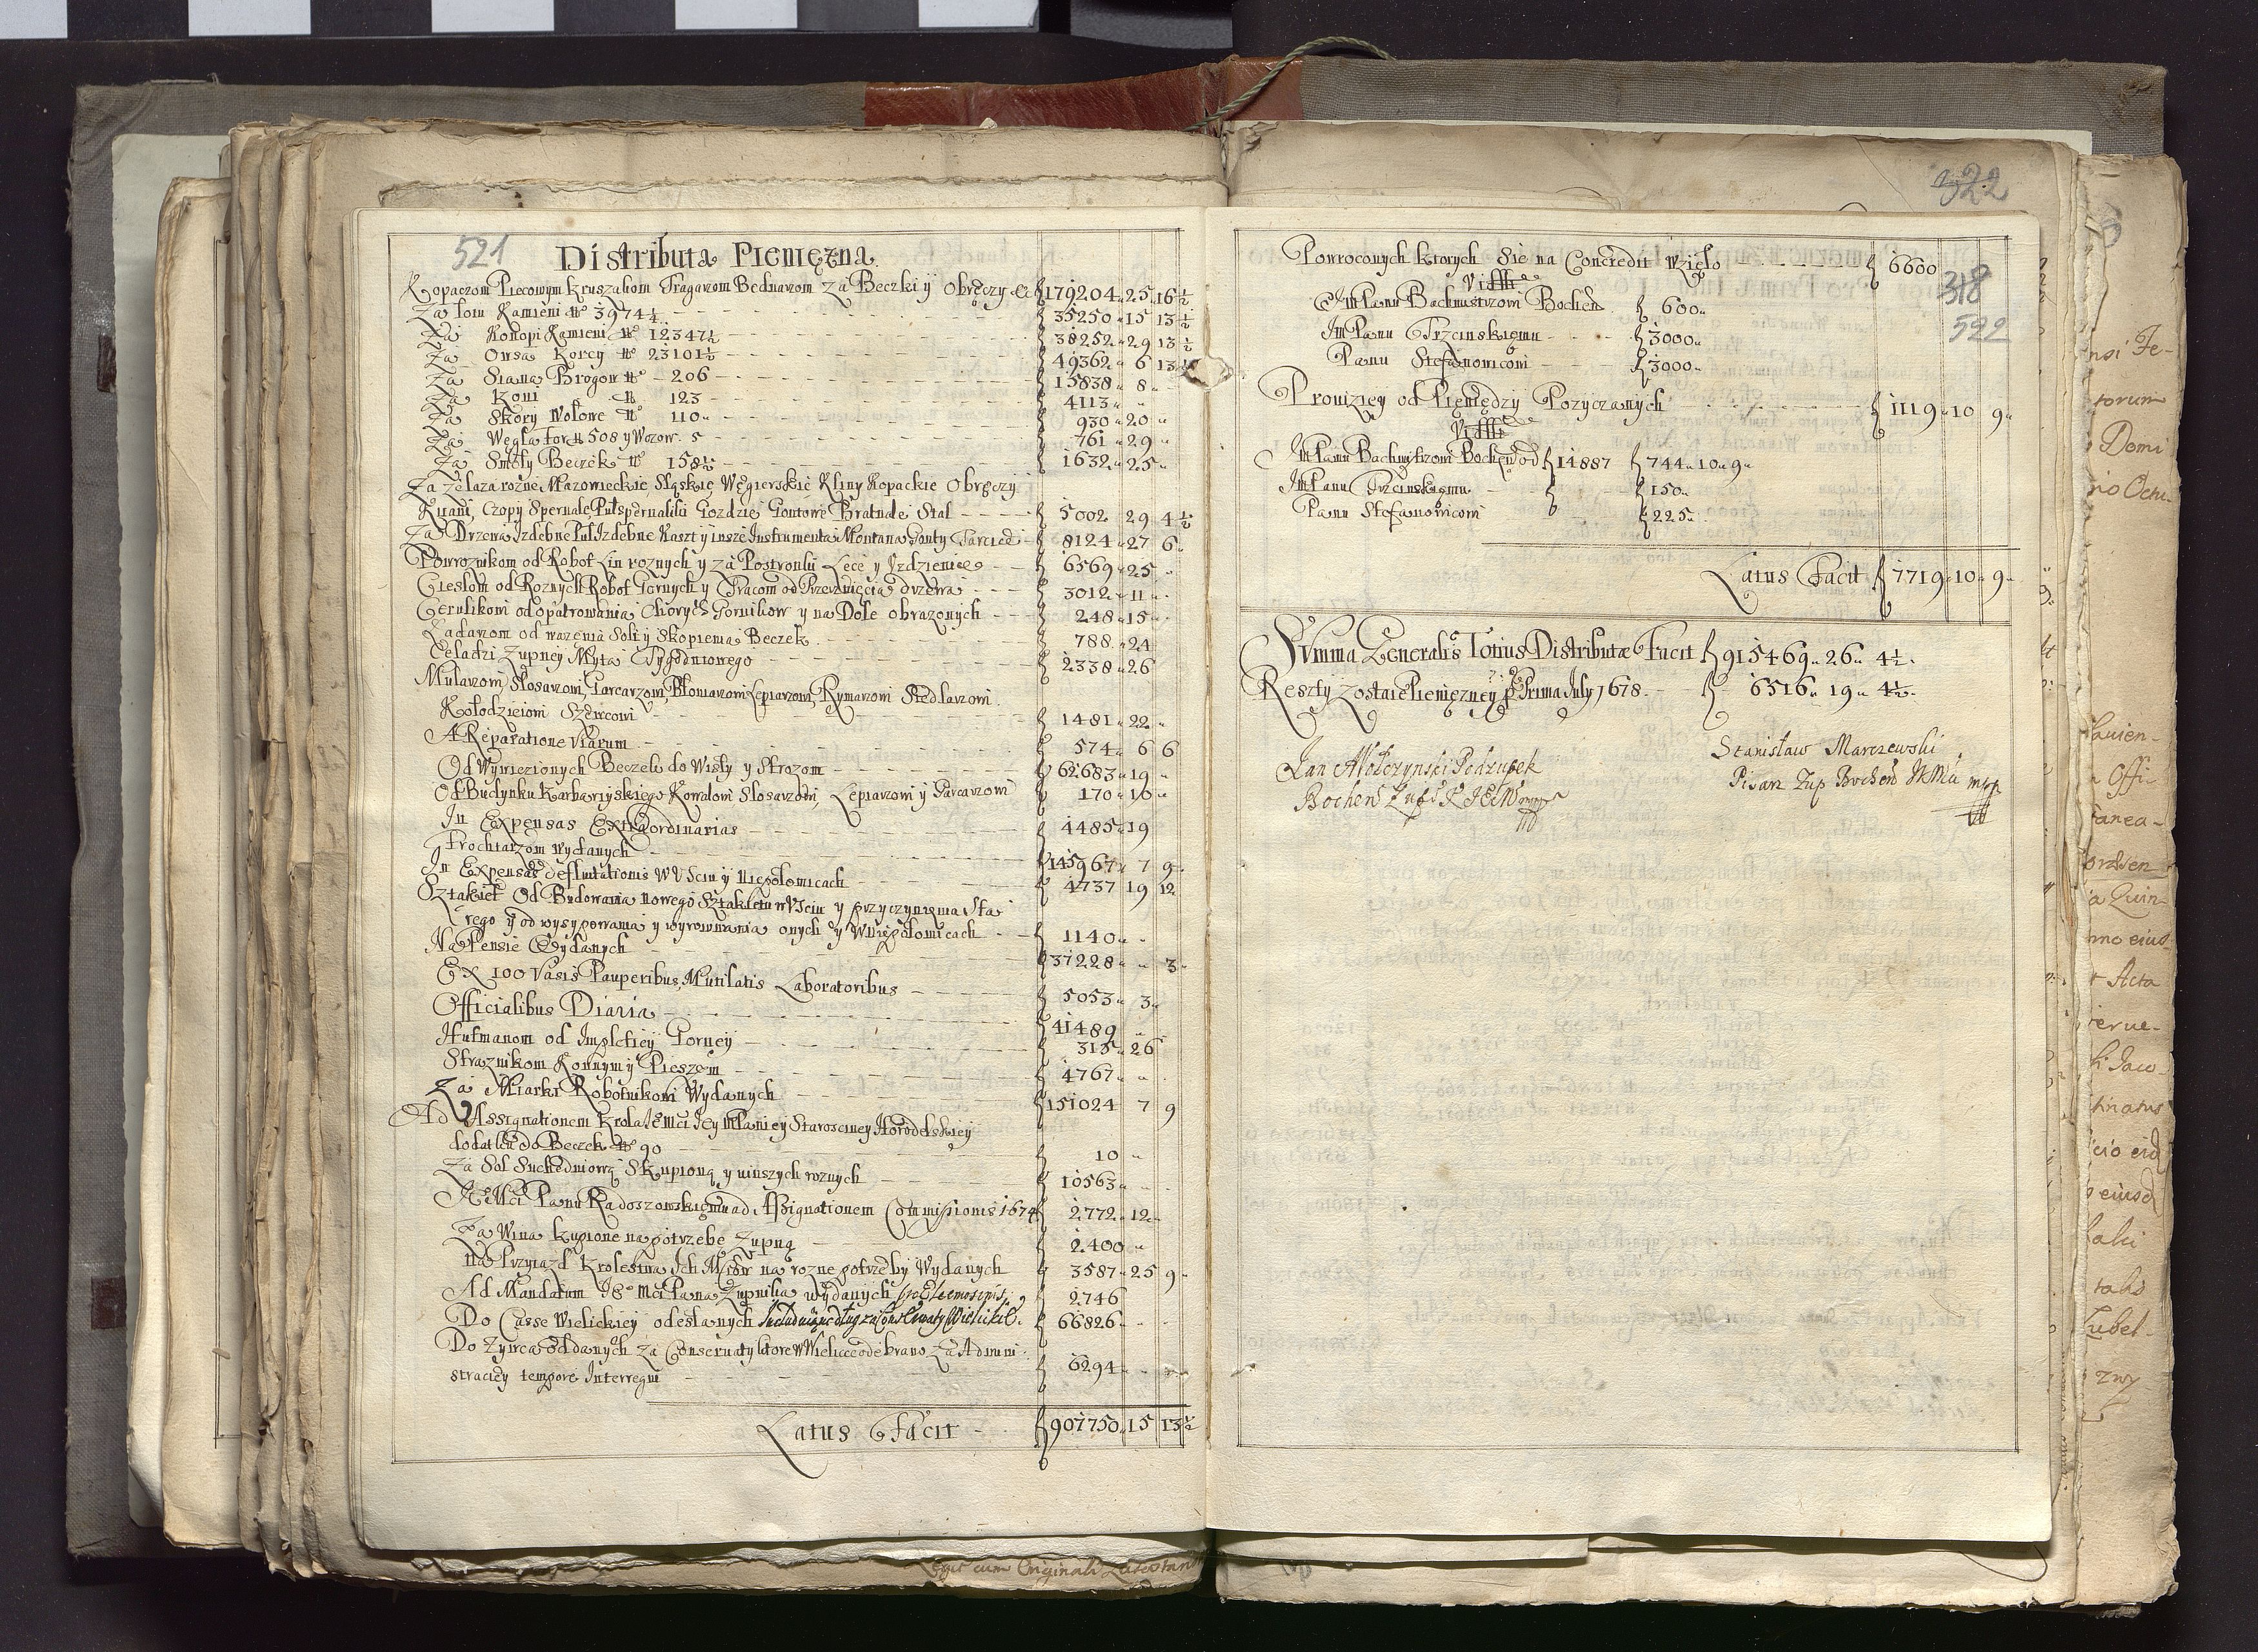 521
Distributa Pieniężna
Kopaczom Piecowym Kruszakom Tragarzom Bednarzom za Beczki y Obręczy &c f 179204 „ 25 „ 16 ½
Za Łoiu Kamieni No 3974 ¼ f 35250 „ 15 13 ½
Za Konopi Kamieni No 12347 ½ 38252 „ 29 13 ½
Za Owsa Korcy No 23101 ½ 49362 „ 6 13 ½
Za Siana Brogow No 206 15838 „ 8 „
Za Koni No 123 4113 „
Za Skory Wołowe No 110 „ 930 „ 20 „
Za Węgla for No 508 y Wozow 5 761 „ 29 „
Za Smoły Beczek No 158 ½ 1632 „ 25 „
Za Zelaza rozne Mazowieckie, Sląskie, Węgierskie Kliny Kopackie Obręczy
Kilani, Czopy Spernale, Pułspernaliki Gozdzie Gontowe Bratnale Stal f 5002 29 4 ½
Za Drzewa Izdebne Puł Izdebne Kaszt y insze Instrumenta Montana Gonty Tarcice f 8124 „ 27 6 „
Powroznikom od Robot Lin roznych y za Postronki Lece y Uzdzienice f 6569 „ 25 „
Cieslom od Roznych Robot Gornych y Tracom od Przerznięcia drzewa f 3012 „ 11 „
Cerulikom od opatrowania Chorych Gornikow y na Dole obrazonych f 248 „ 15 „
Ładarzom od wazenia Soli y Skopienia Beczek f 788 „ 24
Celadzi Zupney Myta Tygodniowego f 2338 „ 26
Mularzom, Slosarzom, Garcarzom, Błoniarzom Lepiarzom, Rymarzom Siedlarzom
Kołodzieiom Szewcom f 1481 „ 22 „
A Reparatione Viarum f 574 „ 6 6
Od Wywiezionych Beczek do Wisły y Strozom f 62683 „ 19 „
Od Budynku Karbaryiskiego Kowalom Slosarzom, Lepiarzom y Garcarzom f 170 „ 10 „
In Expensas Extraordinarias f 4485 „ 19
Frochtarzom wydanych f 145967 „ 7 9 „
In Expensas defluitationis w Usciu y Niepołomicach f 4737 19 12
Sztakiet Od Budowania nowego Sztakietu w Usciu y przyczynienia Sta
rego y od wysypowania y wyrownania onych y w Niepołomicach f 1140 „ „
Na Pensie Wydanych f 37228 „ „ 3 „
Ex 100 Vasis Pauperibus, Mutilatis Laboratoribus f 5053 „ 3 „
Officialibus Diaria f 41489 „
Hutmanom od Inspekciey Gorney f 315 „ 26
Straznikom Konnym y Pieszem f 4767 „ „
Za Miarki Robotnikom Wydanych f 151024 7 9
Ad Assignationem Krola JeMci Jey MPaniey Starosciney Horodelskiey
dodatku do Beczek No 90 f 10 „
Za Sol Suchedniową Skupioną y u inszych roznych f 10563 „
JeMci Panu Radoszowskiemu ad Assignationem Commissionis 1674 f 2772 „ 12 „
Za Wina kupione na potrzebe Zupną f 2400 „
Na Przyiazd Krolestwa Ich Mciow na rozne potrzeby Wydanych f 3587 „ 25 9 „
Ad Mandatum JeoMci Pana Zupnika wydanych pro Eleemosinis f 2746
Do Casse Wielickiey odesłanych f 66826
Do Zywca oddanych za Conserwaty ktore w Wieliczce odebrano za Admini
straciey tempore Interregni f 6294
Latus Facit f 907750 „ 15 13 ½
322
Powroconych ktorych Sie na Concredit wzięło f 6600
318
522
Vidlt
JmPanu Bachmistrzowi Bochen f 600 „
JmPanu Trzcinskiemu f 3000 „
Panu Stefanowicowi f 3000 „
Prowiziey od Pieniędzy Pozyczanych f 1119 „ 10 9 „
Vidlt
JmPanu Bachmistrzowi Bochen od f 14887 f 744 „ 10 „ 9 „
JmPanu Trzcinskiemu f 150 „
Panu Stefanowicowi f 225 „
Latus Facit f 7719 „ 10 „ 9 „
Summa Generalis Totius Distributæ Facit f 915469 „ 26 „ 4 ½ „
Reszty zostaie Pienięzney p Prima July 1678 f 6516 „ 19 „ 4 ½ „
Jan Wolczynski Podzupek
Bochen
Stanisław Marczewski
Pisarz Zup Bochen JKMci mpp